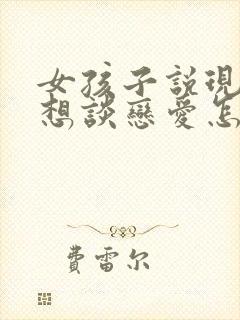 女孩子說現
想談戀愛怎
費雷尔